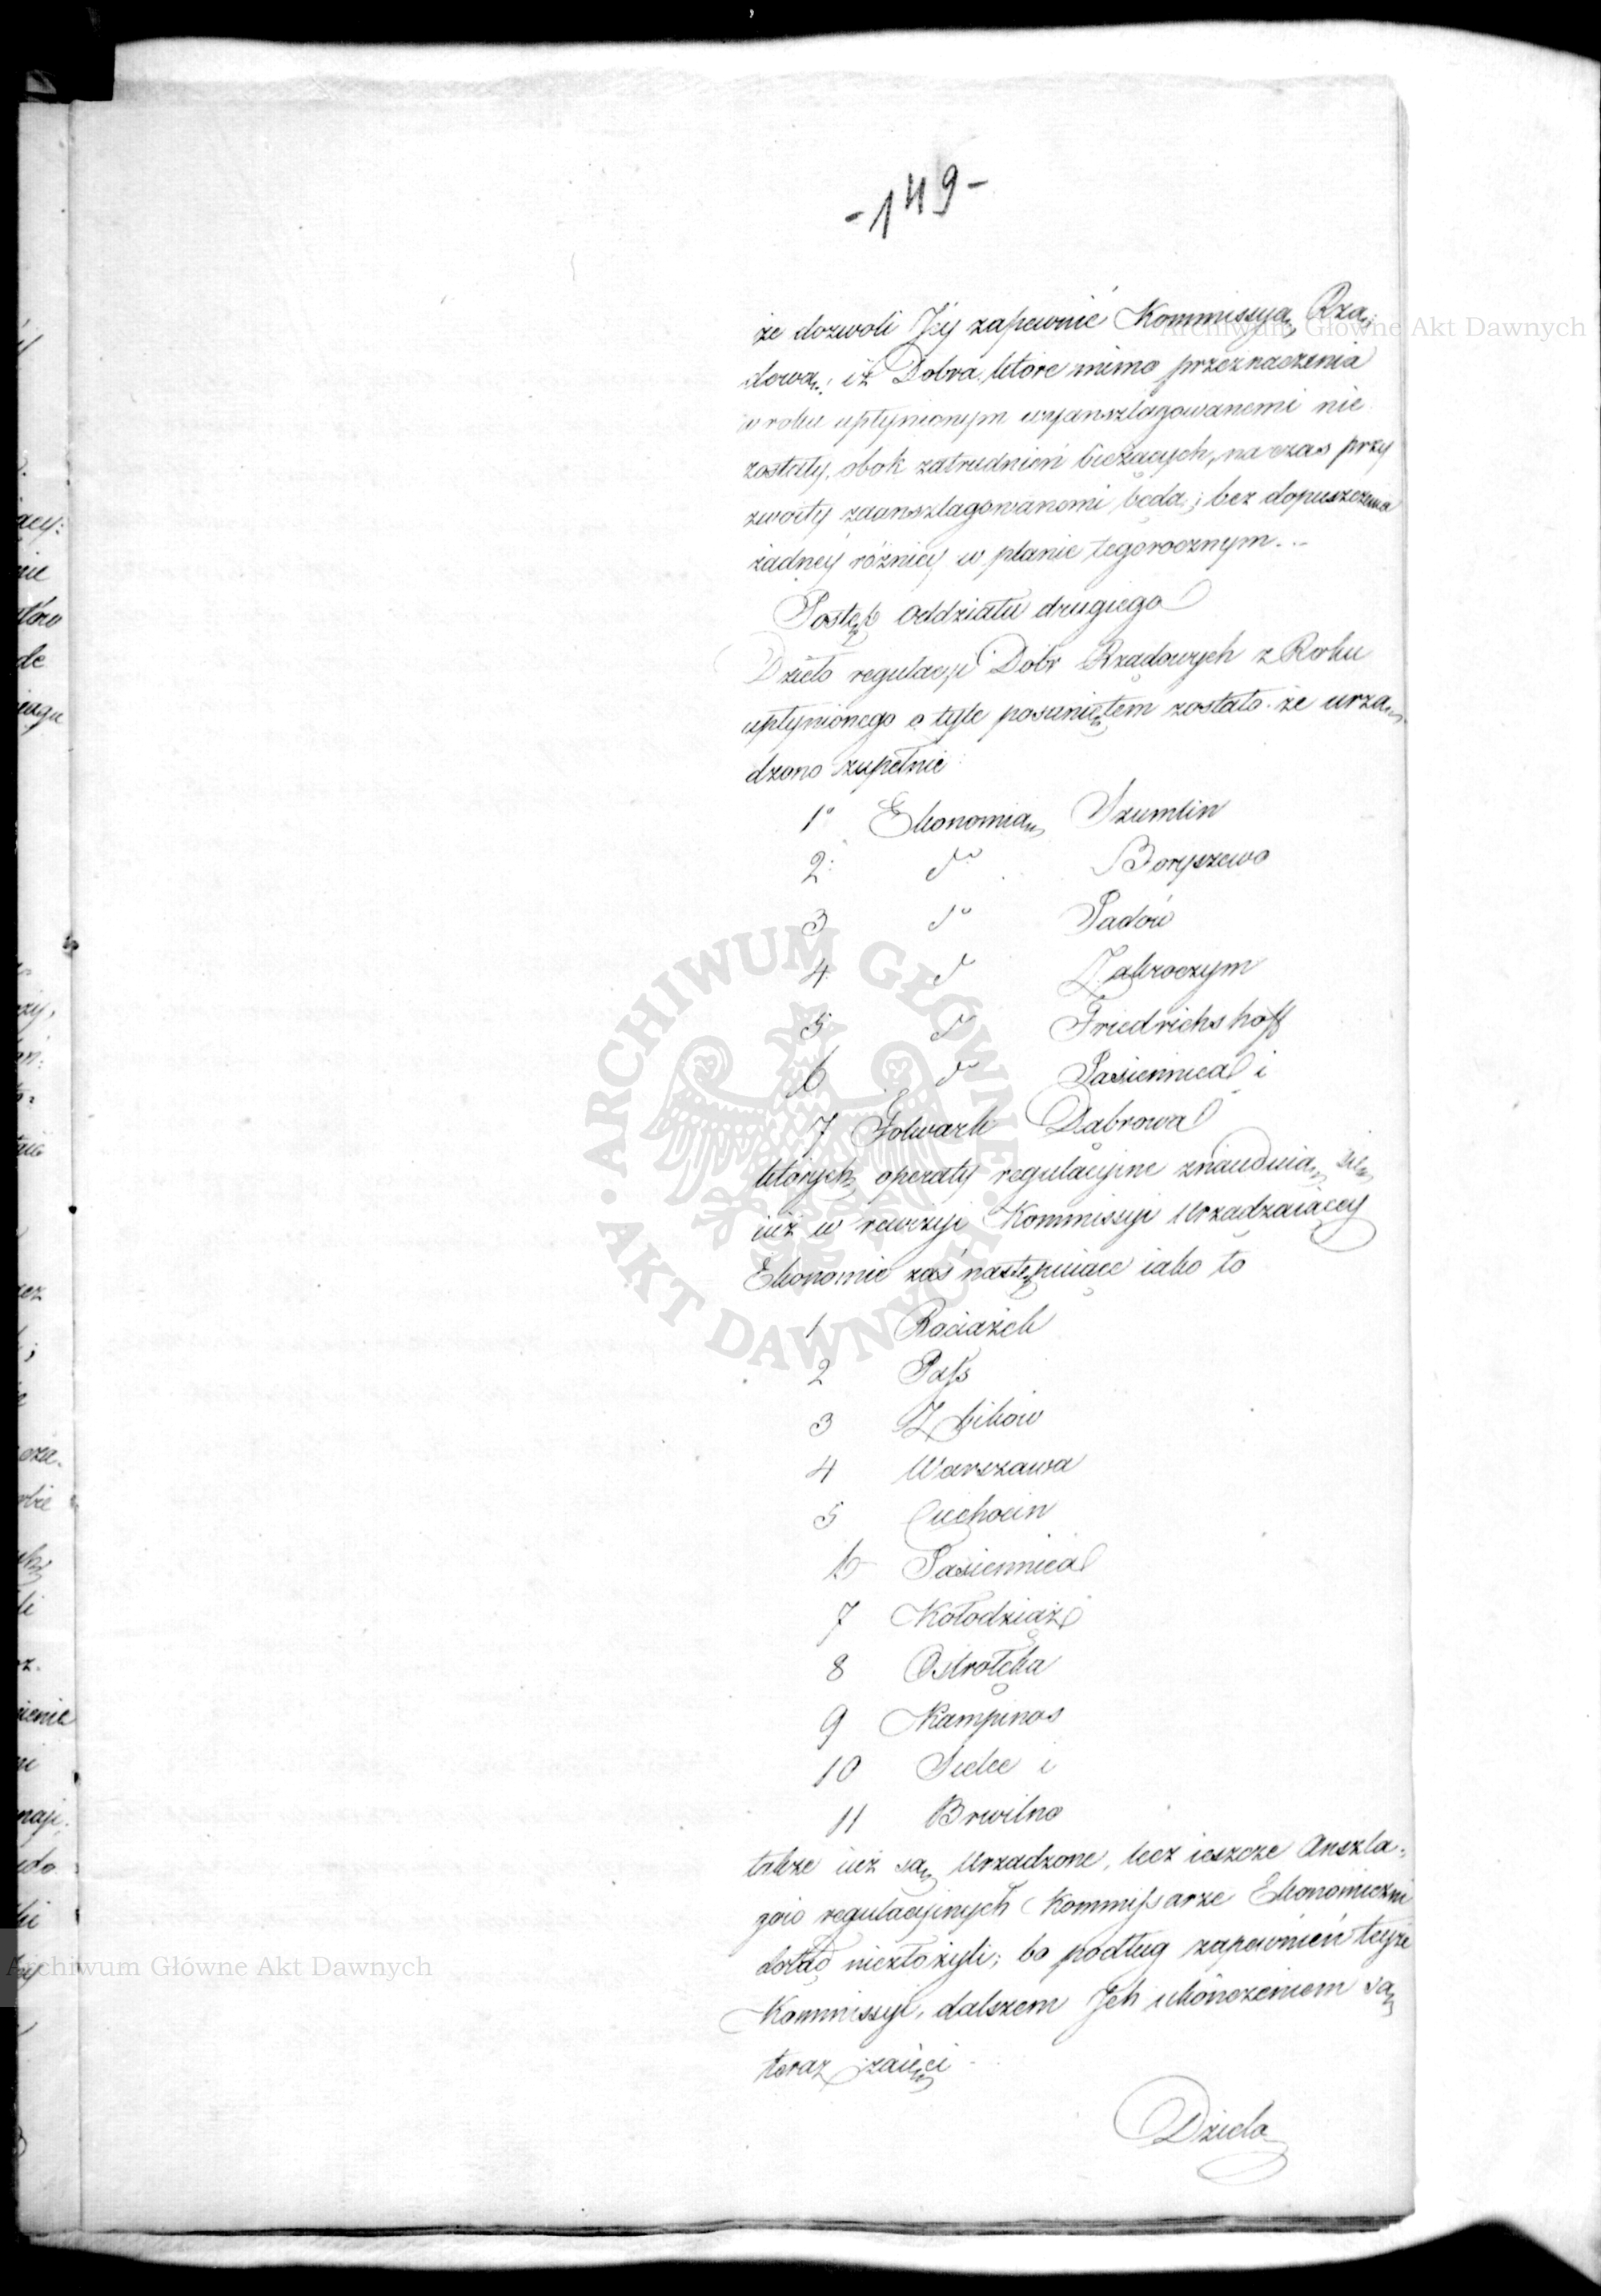 -149-
że dozwoli Jey zapewnić Kommissyą Rzą=
dową, iż Dobra, które mimo przeznaczenia
w roku upłynionym wyanszlagowanemi nie
zostały, obok zatrudnień bieżących, na czas przy
zwoity zaanszlagowanemi będą; bez dopuszczenia
żadnéy różnicy w planie tegorocznym.
Postęp Oddziału drugiego
Dzieło regulacyi Dobr Rządowych z Roku
upłynionego o tyle posuniętem zostało że urzą=
dzono zupełnie
1° Ekonomią Szumlin
2: d° Boryszewo
3 d° Sadów
4 d° Zakroczym
5 d° Friedrichshoff
6 d° Jasiennica i
7 Folwark Dąbrowa
których operaty regulacyine znayduią się
iuż w rewizyi Kommissyi Urządzaiącey
Ekonomie zaś następuiące iako to
1 Raciążek
2 Pass
3 Zbików
4 Warszawa
5 Ciechocin
6 Jasiennica
7 Kołodziąż
8 Ostrołęka
9 Kampinos
10 Sielce i
11 Brwilno
także iuż są Urządzone, lecz ieszcze Anszla=
gów regulacyinych Kommissarze Ekonomiczni
dotąd niezłożyli; bo podług zapewnień teyże
Kommissyi, dalszem Jch ukończeniem są
teraz zaięci
Dzieło
Archiwum Główne Akt Dawnych
ARCHIWUM GŁÓWNE AKT DAWNYCH
Archiwum Główne Akt Dawnych